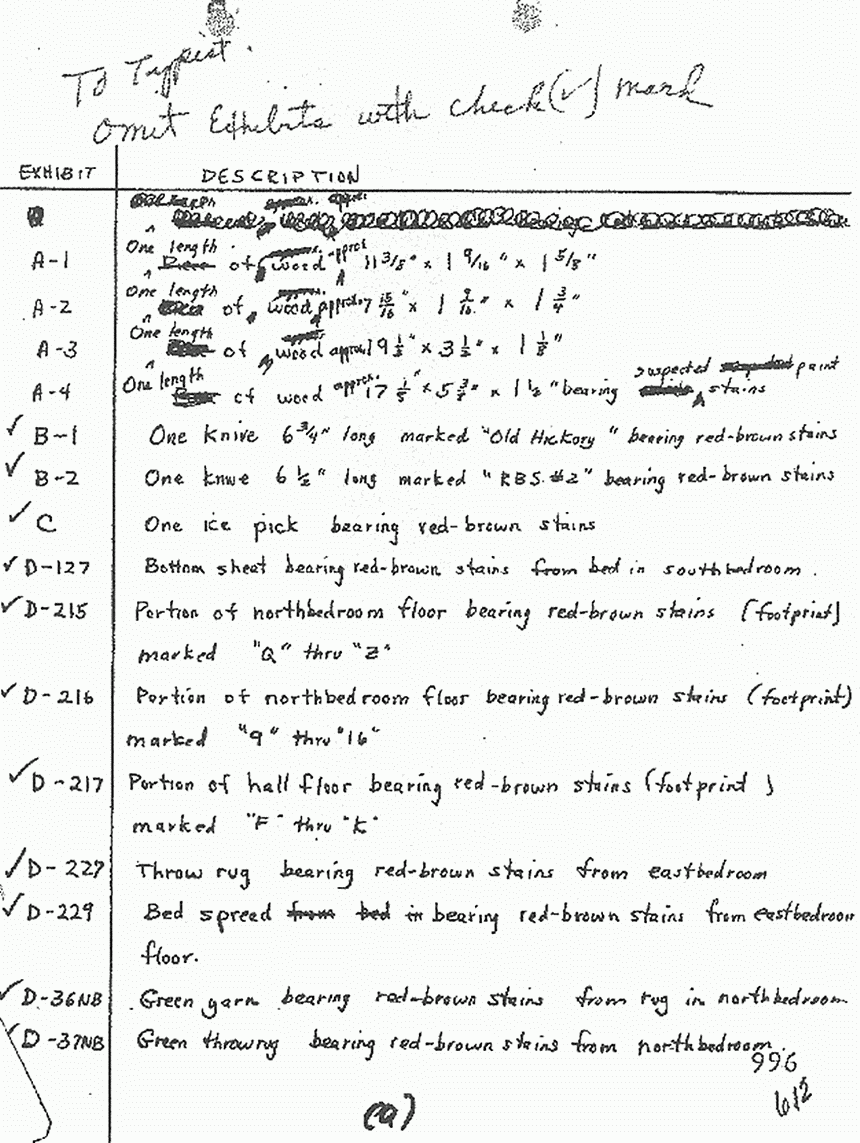 To Typist.
Omit Exhibits with check (✓) mark
EXHIBIT DESCRIPTION
One length
A-1 of wood approx 11 3/8" x 1 9/16" x 1 5/8"
One length
A-2 of wood approx. 7 15/16" x 1 9/16" x 1 3/4"
One length
A-3 of wood approx 9 1/2" x 3 1/2" x 1 1/8"
suspected paint
One length
A-4 of wood approx. 17 1/5" x 5 3/4" x 1 1/2" bearing stains
✓ B-1 One Knive 6 3/4" long marked "Old Hickory" bearing red-brown stains
✓ B-2 One knive 6 1/2" long marked "RBS #2" bearing red-brown stains
✓ C One ice pick bearing red-brown stains
✓ D-127 Bottom sheet bearing red-brown stains from bed in southbedroom.
✓ D-215 Portion of northbedroom floor bearing red-brown stains (footprint)
marked "Q" thru "Z"
✓ D-216 Portion of northbedroom floor bearing red-brown stains (footprint)
marked "9" thru "16"
✓ D-217 Portion of hall floor bearing red-brown stains (footprint)
marked "F" thru "K"
✓ D-227 Throw rug bearing red-brown stains from eastbedroom
✓ D-229 Bed spread from bed in bearing red-brown stains from eastbedroom
floor.
✓ D-36NB Green yarn bearing red-brown stains from rug in northbedroom
✓ D-37NB Green throwrug bearing red-brown stains from northbedroom.
996
612
(a)